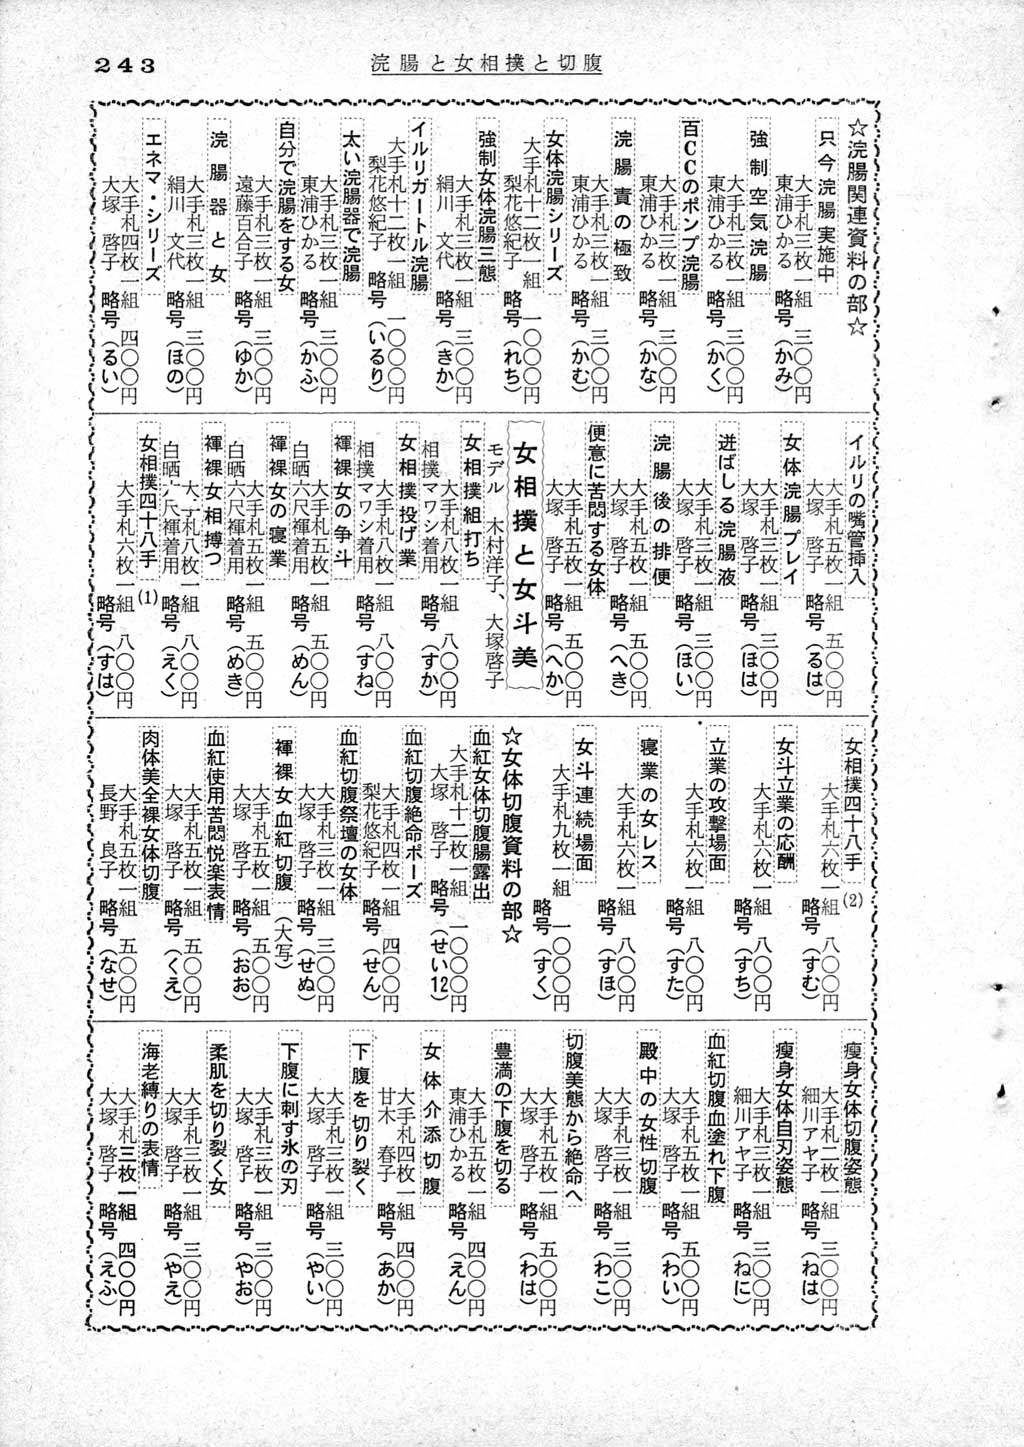 243
浣腸と女相撲と切腹
☆浣腸関連資料の部☆
只今浣腸実施中
大手札三枚一組 三〇〇円
東浦ひかる 略号(かみ)
強制空気浣腸
大手札三枚一組 三〇〇円
東浦ひかる 略号(かく)
百CCのポンプ浣腸
大手札三枚一組 三〇〇円
東浦ひかる 略号(かな)
浣腸責の極致
大手札三枚一組 三〇〇円
東浦ひかる 略号(かむ)
女体浣腸シリーズ
大手札十二枚一組 一〇〇〇円
梨花悠紀子 略号(れち)
強制女体浣腸三態
大手札三枚一組 三〇〇円
絹川 文代 略号(きか)
イルリガートル浣腸
大手札十二枚一組 一〇〇〇円
梨花悠紀子 略号(いるり)
太い浣腸器で浣腸
大手札三枚一組 三〇〇円
東浦ひかる 略号(かふ)
自分で浣腸をする女
大手札三枚一組 三〇〇円
遠藤百合子 略号(ゆか)
浣腸器と女
大手札三枚一組 三〇〇円
絹川 文代 略号(ほの)
エネマ・シリーズ
大手札四枚一組 四〇〇円
大塚 啓子 略号(るい)
イルリの嘴管挿入
大手札五枚一組 五〇〇円
大塚 啓子 略号(るは)
女体浣腸プレイ
大手札三枚一組 三〇〇円
大塚 啓子 略号(ほは)
迸ばしる浣腸液
大手札三枚一組 三〇〇円
大塚 啓子 略号(ほい)
浣腸後の排便
大手札五枚一組 五〇〇円
大塚 啓子 略号(へき)
便意に苦悶する女体
大手札五枚一組 五〇〇円
大塚 啓子 略号(へか)
女相撲と女斗美
モデル 木村洋子、大塚啓子
女相撲組打ち
大手札八枚一組 八〇〇円
相撲マワシ着用 略号(すか)
女相撲投げ業
大手札八枚一組 八〇〇円
相撲マワシ着用 略号(すね)
褌裸女の争斗
大手札五枚一組 五〇〇円
白晒六尺褌着用 略号(めん)
褌裸女の寝業
大手札五枚一組 五〇〇円
白晒六尺褌着用 略号(めき)
褌裸女相搏つ
大手札八枚一組 八〇〇円
白晒六尺褌着用 略号(えく)
女相撲四十八手(1)
大手札六枚一組 八〇〇円
略号(すは)
女相撲四十八手(2)
大手札六枚一組 八〇〇円
略号(すむ)
女斗立業の応酬
大手札六枚一組 八〇〇円
略号(すち)
立業の攻撃場面
大手札六枚一組 八〇〇円
略号(すた)
寝業の女レス
大手札六枚一組 八〇〇円
略号(すほ)
女斗連続場面
大手札九枚一組 一〇〇〇円
略号(すく)
☆女体切腹資料の部☆
血紅女体切腹腸露出
大手札十二枚一組 一〇〇〇円
大塚 啓子 略号(せい12)
血紅切腹絶命ポーズ
大手札四枚一組 四〇〇円
梨花悠紀子 略号(せん)
血紅切腹祭壇の女体
大手札三枚一組 三〇〇円
大塚 啓子 略号(せぬ)
褌裸女血紅切腹(大写)
大手札五枚一組 五〇〇円
大塚 啓子 略号(おお)
血紅使用苦悶悦楽表情
大手札五枚一組 五〇〇円
大塚 啓子 略号(くえ)
肉体美全裸女体切腹
大手札五枚一組 五〇〇円
長野 良子 略号(なせ)
瘦身女体切腹姿態
大手札二枚一組 三〇〇円
細川アヤ子 略号(ねは)
瘦身女体自刃姿態
大手札三枚一組 三〇〇円
細川アヤ子 略号(ねに)
血紅切腹血塗れ下腹
大手札五枚一組 五〇〇円
大塚 啓子 略号(わい)
殿中の女性切腹
大手札三枚一組 三〇〇円
大塚 啓子 略号(わこ)
切腹美態から絶命へ
大手札五枚一組 五〇〇円
大塚 啓子 略号(わは)
豊満の下腹を切る
大手札五枚一組 四〇〇円
東浦ひかる 略号(えん)
女体介添切腹
大手札四枚一組 四〇〇円
甘木 春子 略号(あか)
下腹を切り裂く
大手札三枚一組 三〇〇円
大塚 啓子 略号(やい)
下腹に刺す氷の刃
大手札三枚一組 三〇〇円
大塚 啓子 略号(やお)
柔肌を切り裂く女
大手札三枚一組 三〇〇円
大塚 啓子 略号(やえ)
海老縛りの表情
大手札三枚一組 四〇〇円
大塚 啓子 略号(えふ)